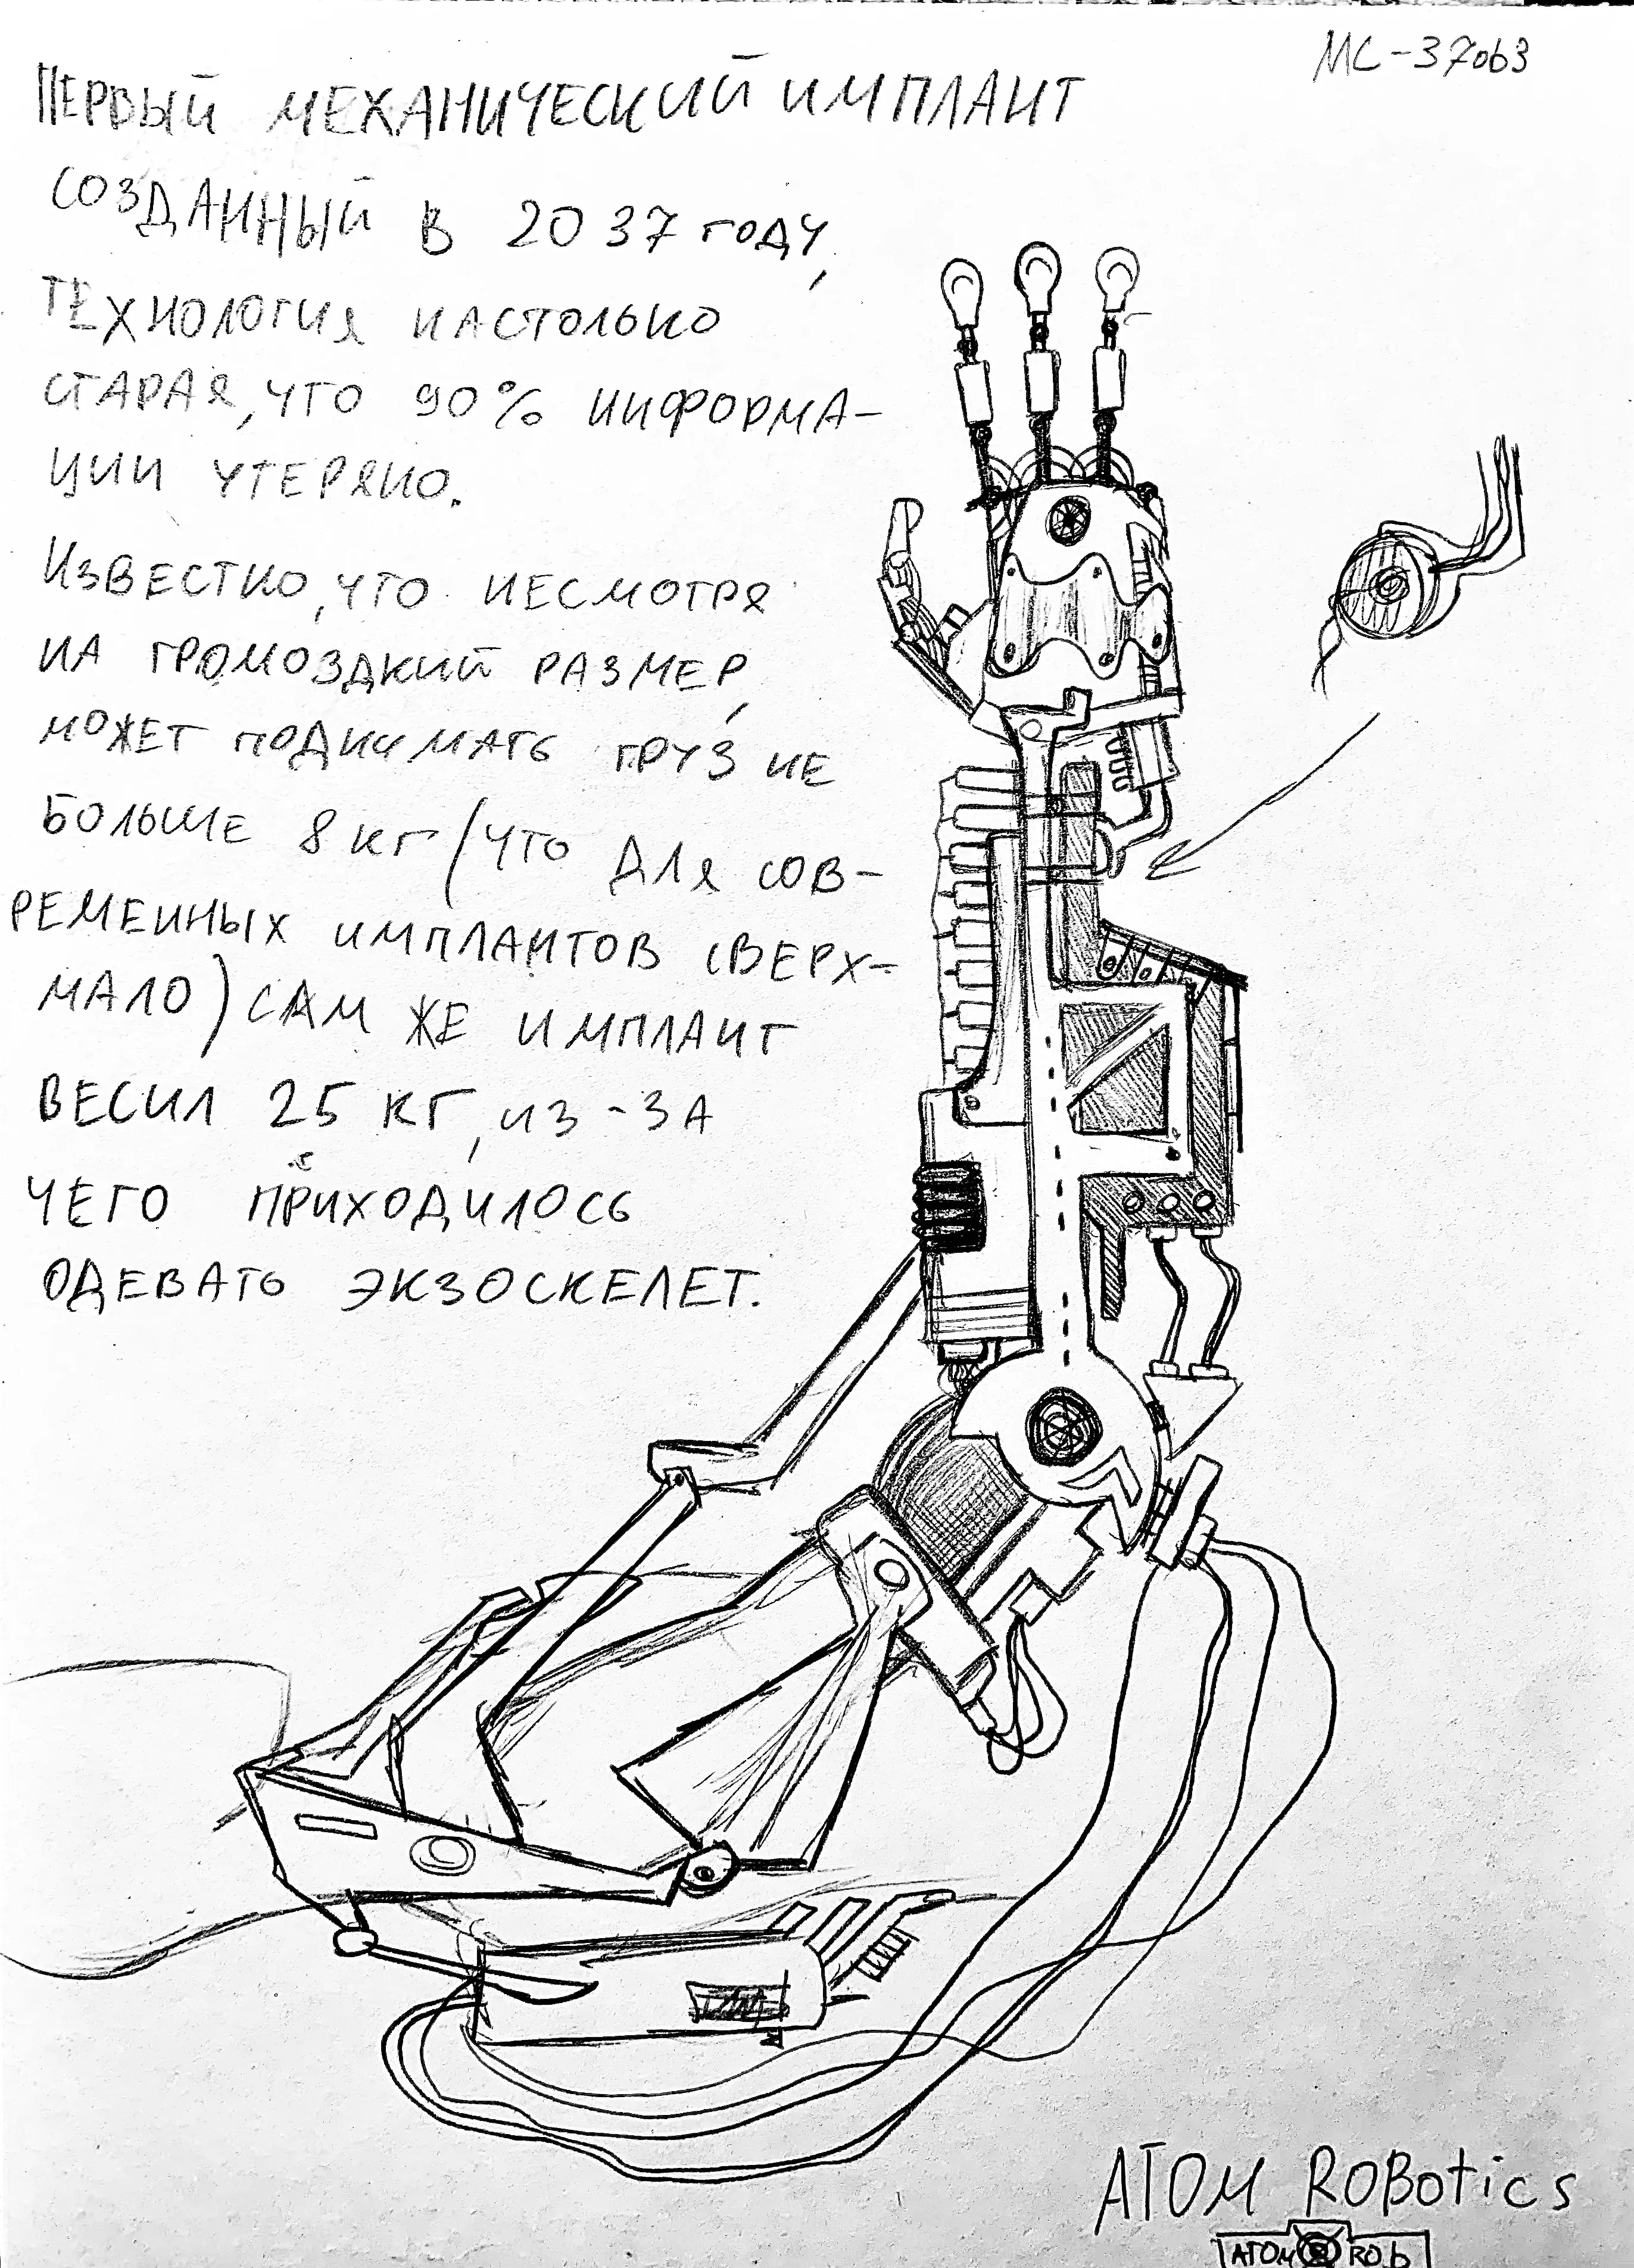 МС-37063
ПЕРВЫЙ МЕХАНИЧЕСКИЙ ИМПЛАНТ
СОЗДАННЫЙ В 2037 ГОДУ,
ТЕХНОЛОГИЯ НАСТОЛЬКО
СТАРАЯ, ЧТО 90% ИНФОРМА-
ЦИИ УТЕРЯНО.
ИЗВЕСТНО, ЧТО НЕСМОТРЯ
НА ГРОМОЗДКИЙ РАЗМЕР,
МОЖЕТ ПОДНИМАТЬ ГРУЗ НЕ
БОЛЬШЕ 8 КГ (ЧТО ДЛЯ СОВ-
РЕМЕННЫХ ИМПЛАНТОВ СВЕРХ-
МАЛО) САМ ЖЕ ИМПЛАНТ
ВЕСИЛ 25 КГ, ИЗ-ЗА
ЧЕГО ПРИХОДИЛОСЬ
ОДЕВАТЬ ЭКЗОСКЕЛЕТ.
ATOM ROBOTICS
ATOM ROb